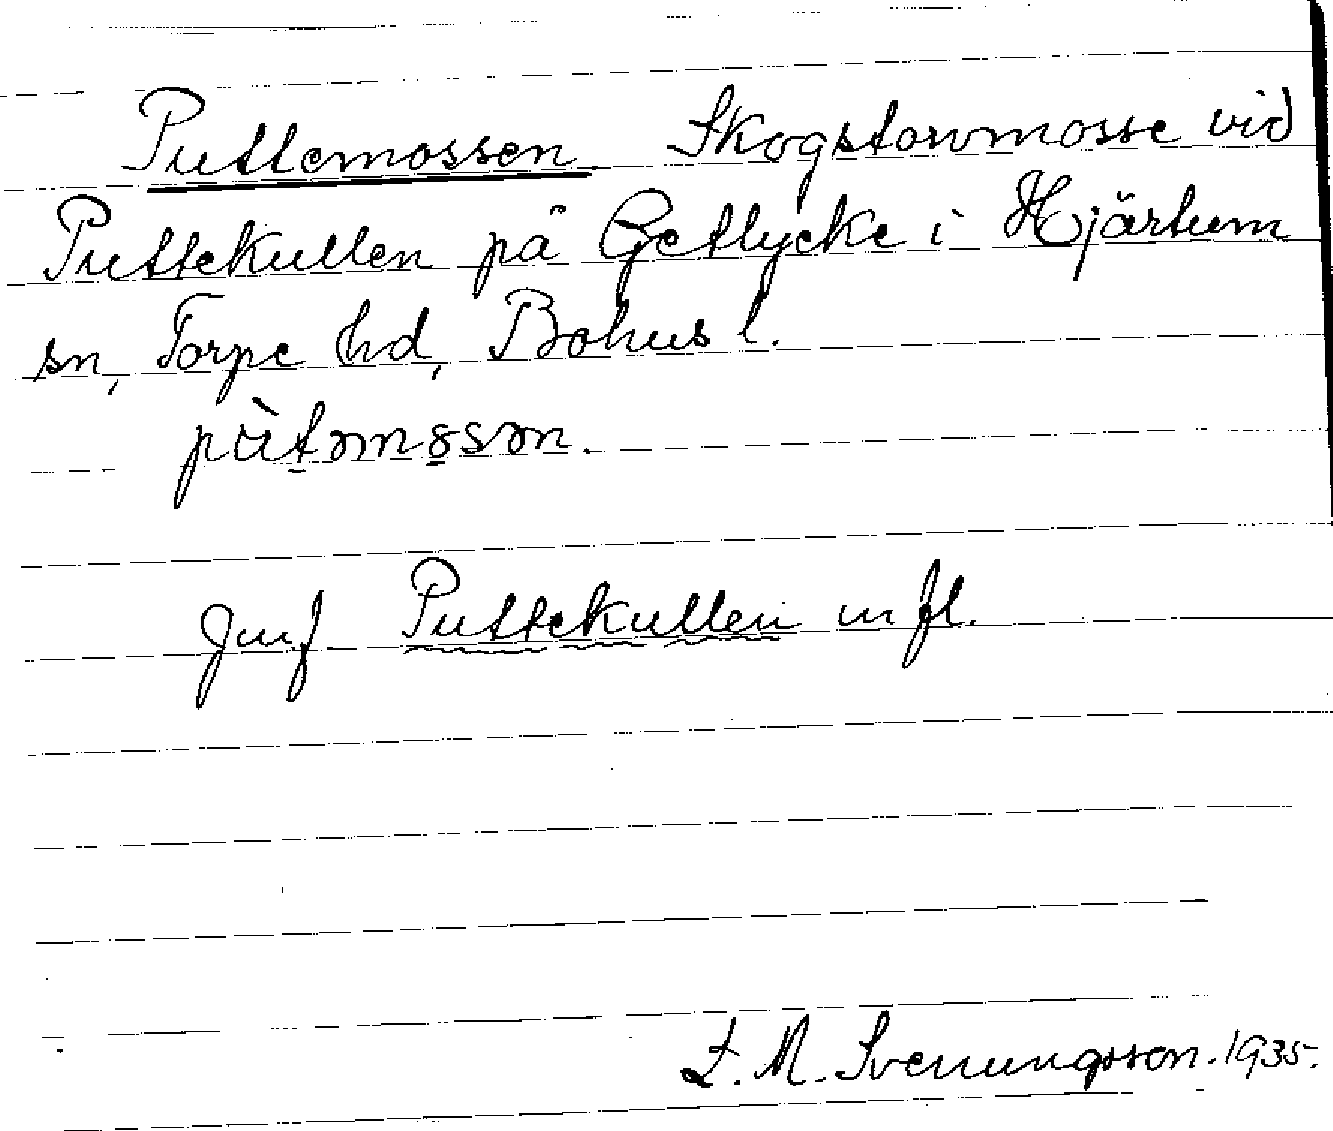 Puttemossen Skogstorvmosse vid
Puttekullen på Getlycke i Hjärtum
sn, Torpe hd, Bohus l.
pùtəmɷsən.
Jmf Puttekullen m fl.
L. M. Svenungsson. 1935.